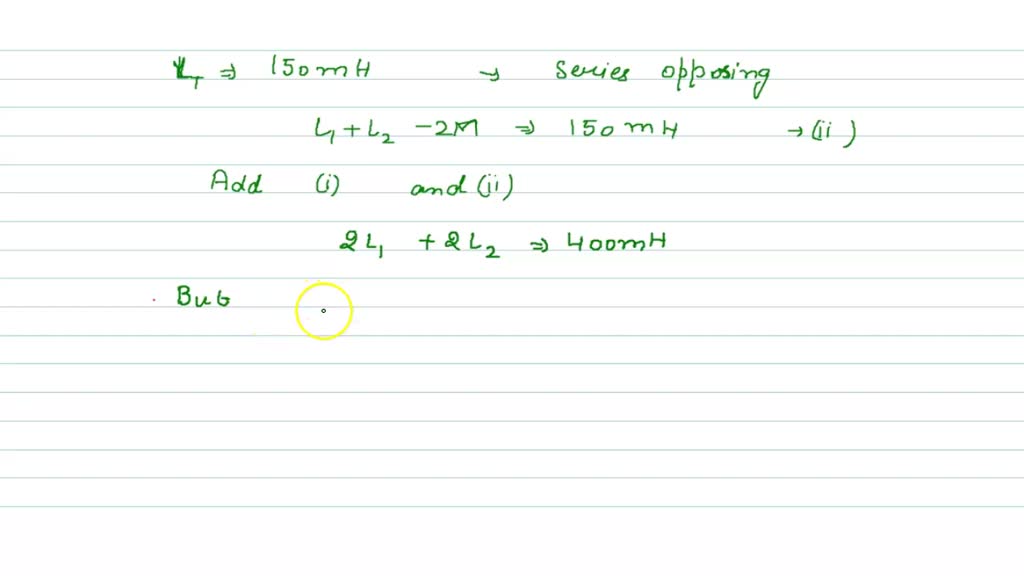 L₁ ⇒ 150mH → Series opposing
L₁ + L₂ - 2M ⇒ 150mH → (ii)
Add (i) and (ii)
2L₁ + 2L₂ ⇒ 400mH
But